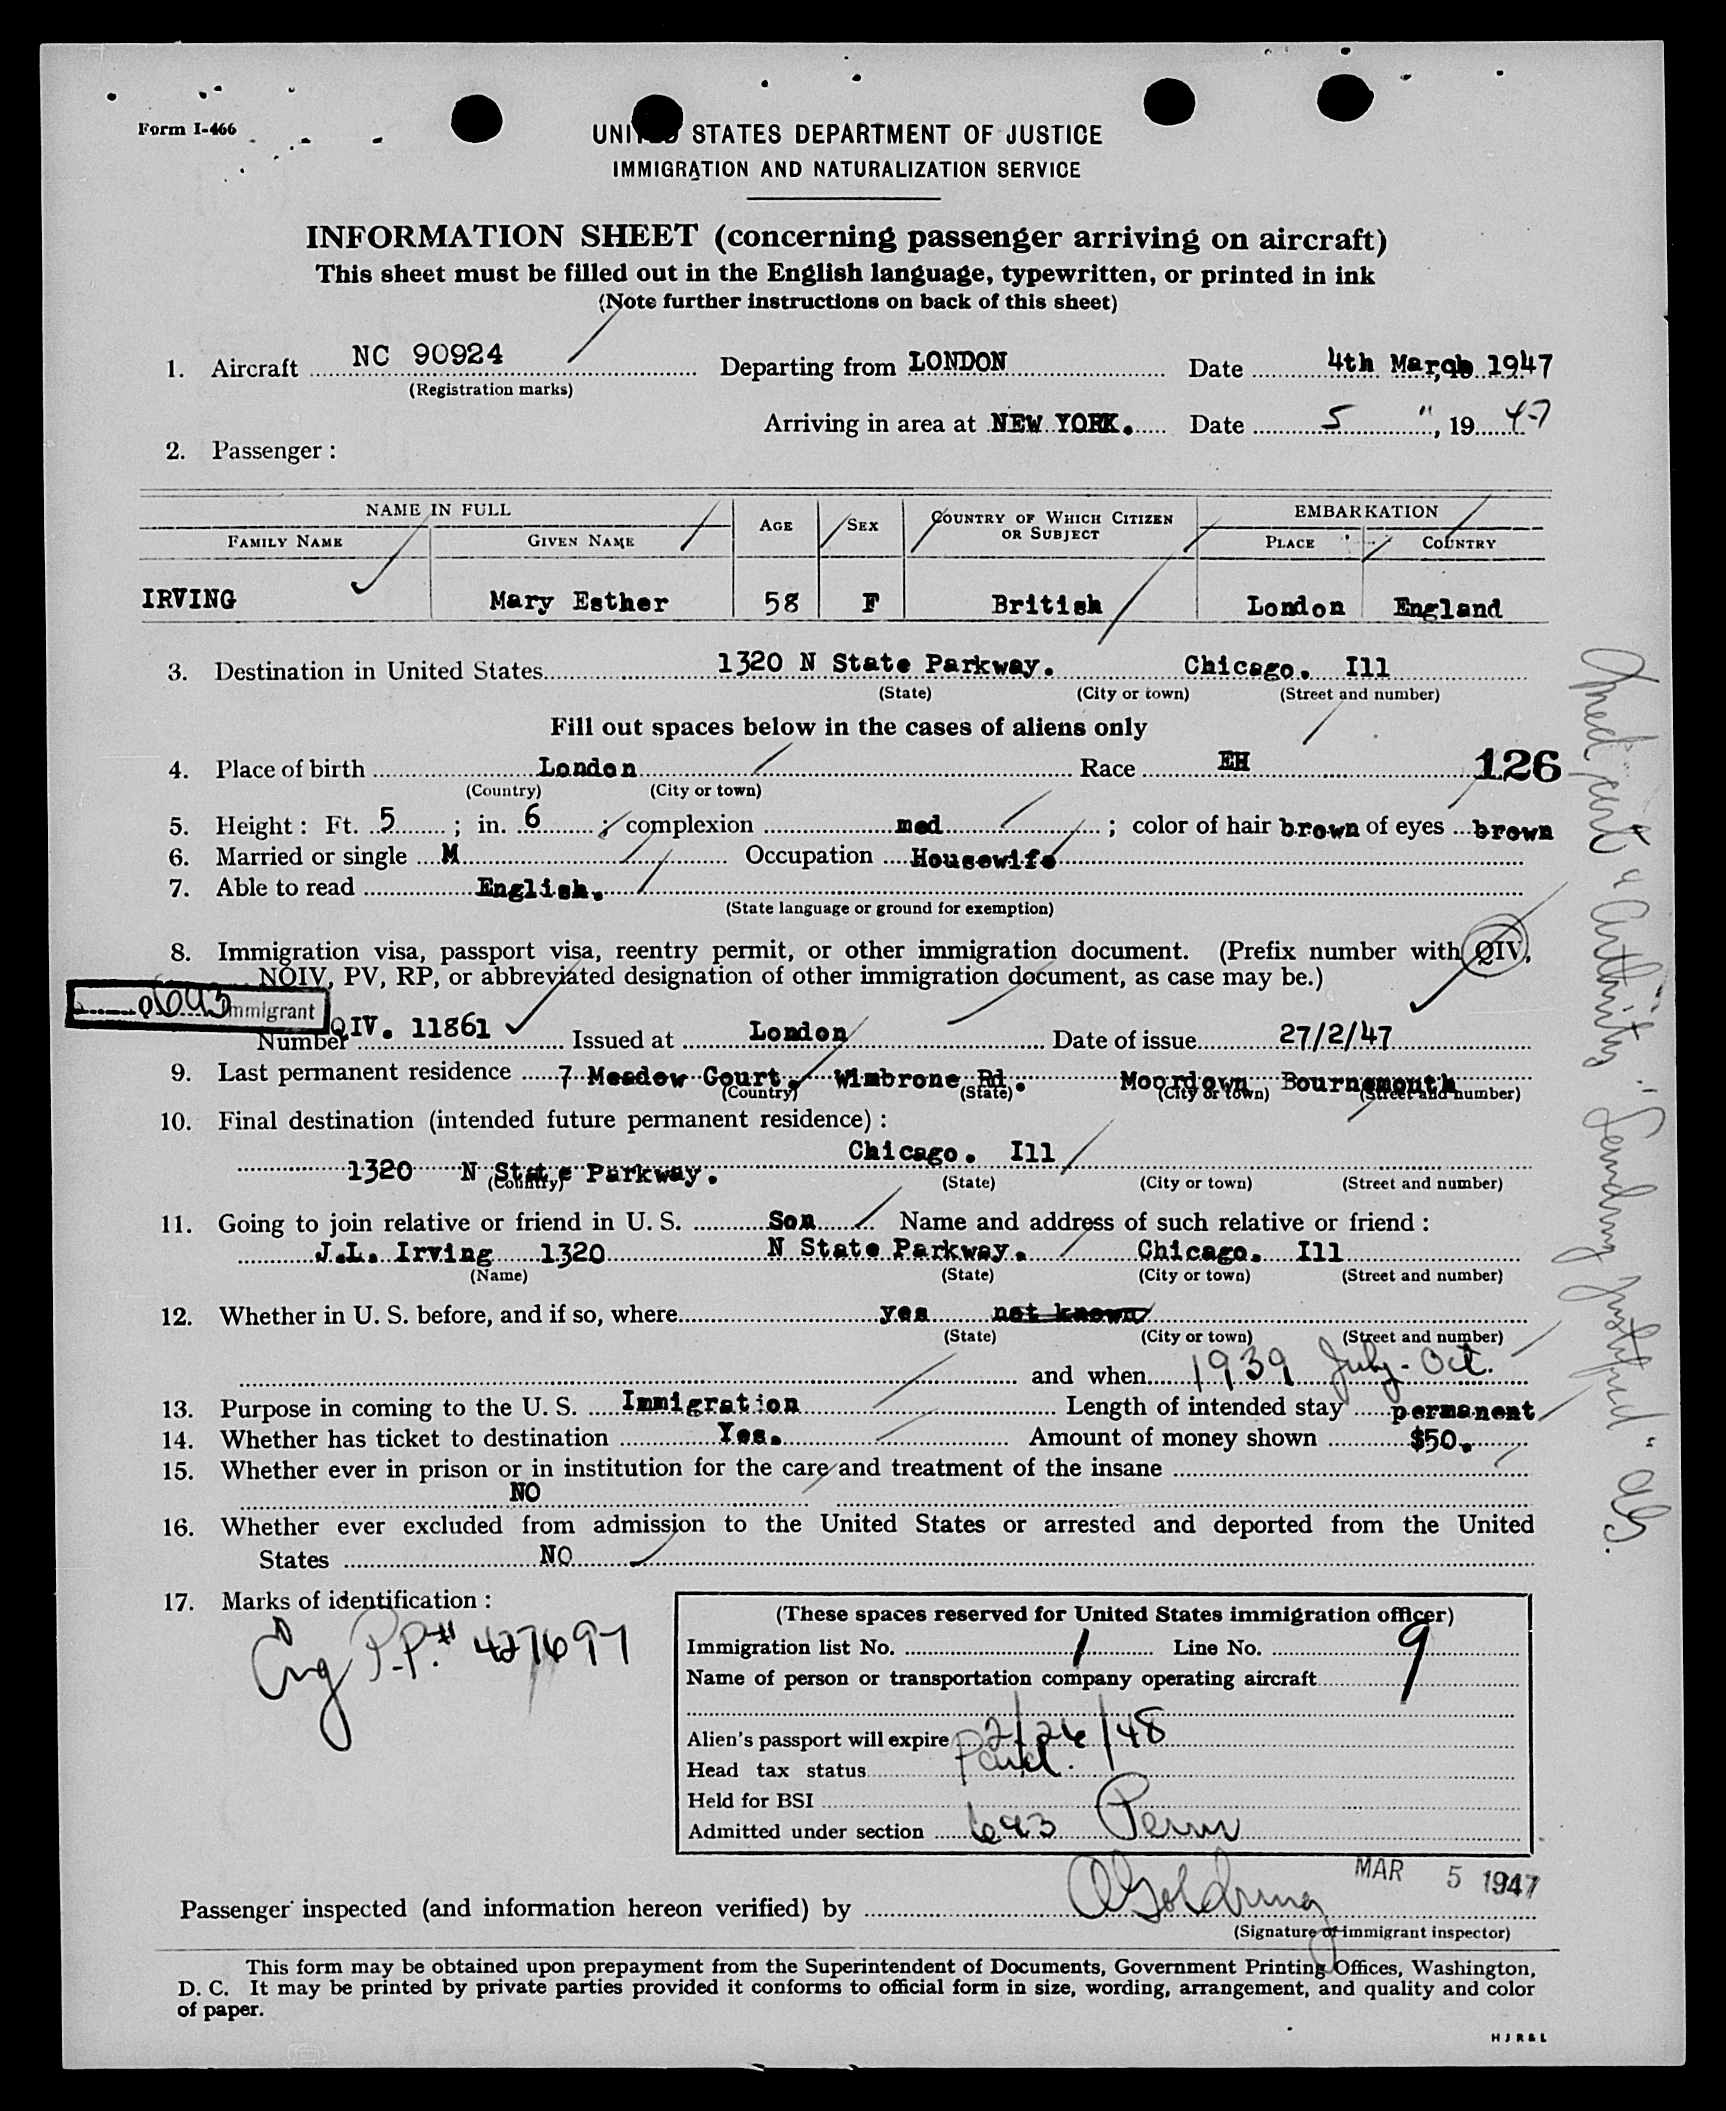 Form I-466
UNITED STATES DEPARTMENT OF JUSTICE
IMMIGRATION AND NATURALIZATION SERVICE
INFORMATION SHEET (concerning passenger arriving on aircraft)
This sheet must be filled out in the English language, typewritten, or printed in ink
(Note further instructions on back of this sheet)
1. Aircraft NC 90924 Departing from LONDON Date 4th March 1947
(Registration marks)
Arriving in area at NEW YORK. Date 5 ", 19 47
2. Passenger :
NAME IN FULL AGE SEX COUNTRY OF WHICH CITIZEN OR SUBJECT EMBARKATION
FAMILY NAME GIVEN NAME PLACE COUNTRY
IRVING Mary Esther 58 F British London England
3. Destination in United States 1320 N State Parkway. Chicago. Ill
(State) (City or town) (Street and number)
Fill out spaces below in the cases of aliens only
4. Place of birth London Race EH 126
(Country) (City or town)
5. Height : Ft. 5 ; in. 6 ; complexion med ; color of hair brown of eyes brown
6. Married or single M Occupation Housewife
7. Able to read English.
(State language or ground for exemption)
8. Immigration visa, passport visa, reentry permit, or other immigration document. (Prefix number with QIV,
NQIV, PV, RP, or abbreviated designation of other immigration document, as case may be.)
0693 Immigrant
Number QIV. 11861 Issued at London Date of issue 27/2/47
9. Last permanent residence 7 Meadow Court. Wimbrone Rd. Moordown Bournemouth
(Country) (State) (City or town) (Street and number)
10. Final destination (intended future permanent residence) :
1320 N State Parkway. Chicago. Ill
(Country) (State) (City or town) (Street and number)
11. Going to join relative or friend in U. S. Son Name and address of such relative or friend :
J.L. Irving 1320 N State Parkway. Chicago. Ill
(Name) (State) (City or town) (Street and number)
12. Whether in U. S. before, and if so, where yes not known
(State) (City or town) (Street and number)
and when 1939 July - Oct.
13. Purpose in coming to the U. S. Immigration Length of intended stay permanent
14. Whether has ticket to destination Yes. Amount of money shown $50.
15. Whether ever in prison or in institution for the care and treatment of the insane
NO
16. Whether ever excluded from admission to the United States or arrested and deported from the United
States NO
17. Marks of identification :
Eng P.P.# 427697
(These spaces reserved for United States immigration officer)
Immigration list No. 1 Line No. 9
Name of person or transportation company operating aircraft
Alien's passport will expire 2/26/48
Head tax status Paid.
Held for BSI
Admitted under section 693 Perm
MAR 5 1947
Passenger inspected (and information hereon verified) by AGoldring
(Signature of immigrant inspector)
This form may be obtained upon prepayment from the Superintendent of Documents, Government Printing Offices, Washington,
D. C. It may be printed by private parties provided it conforms to official form in size, wording, arrangement, and quality and color
of paper.
H J R & L
med cert & Authority "Landing Justified" AG.